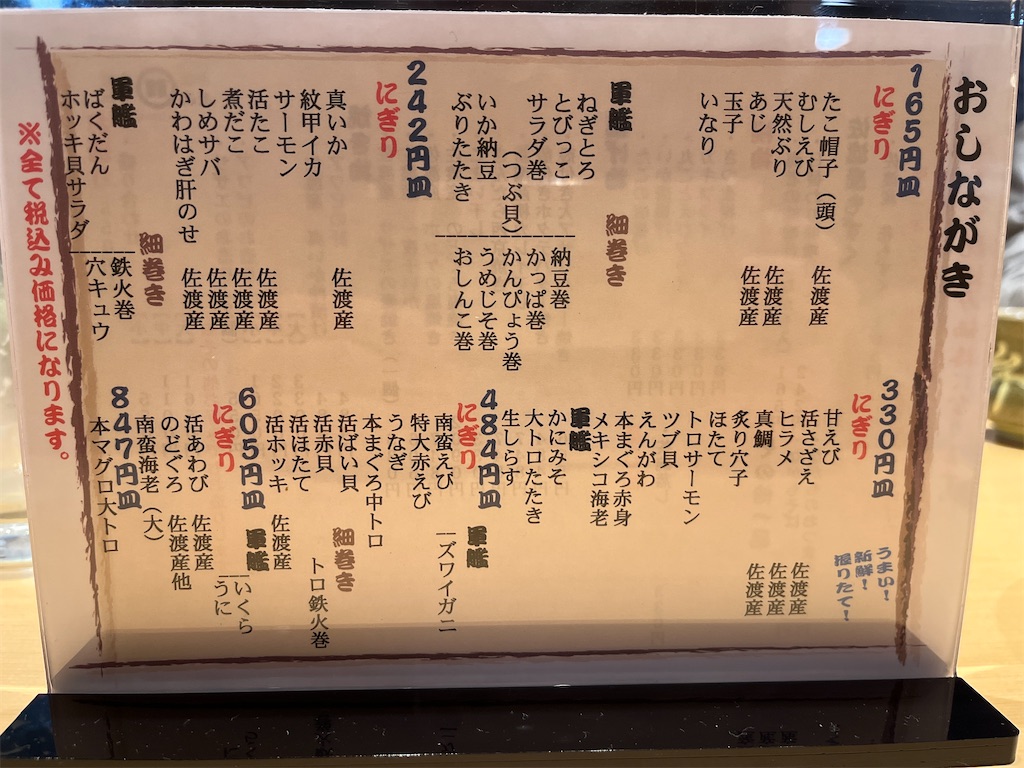 おしながき
165円皿
にぎり
たこ帽子(頭) 佐渡産
むしえび
天然ぶり 佐渡産
あじ 佐渡産
玉子
いなり
軍艦
ねぎとろ
とびっこ
サラダ巻
(つぶ貝)
いか納豆
ぶりたたき
細巻き
納豆巻
かっぱ巻
かんぴょう巻
うめじそ巻
おしんこ巻
242円皿
にぎり
真いか 佐渡産
紋甲イカ
サーモン
活たこ 佐渡産
煮だこ 佐渡産
しめサバ 佐渡産
かわはぎ肝のせ 佐渡産
軍艦
ばくだん
ホッキ貝サラダ
細巻き
鉄火巻
穴キュウ
330円皿
にぎり
甘えび
活さざえ 佐渡産
ヒラメ 佐渡産
真鯛 佐渡産
炙り穴子
ほたて
トロサーモン
ツブ貝
えんがわ
本まぐろ赤身
メキシコ海老
軍艦
かにみそ
大トロたたき
生しらす
うまい!
新鮮!
握りたて!
484円皿
にぎり
南蛮えび
特大赤えび
うなぎ
本まぐろ中トロ
活ばい貝
活赤貝
活ほたて
活ホッキ 佐渡産
軍艦
ズワイガニ
細巻き
トロ鉄火巻
605円皿
にぎり
活あわび 佐渡産
のどぐろ 佐渡産他
南蛮海老(大)
軍艦
いくら
うに
847円皿
本マグロ大トロ
※全て税込み価格になります。